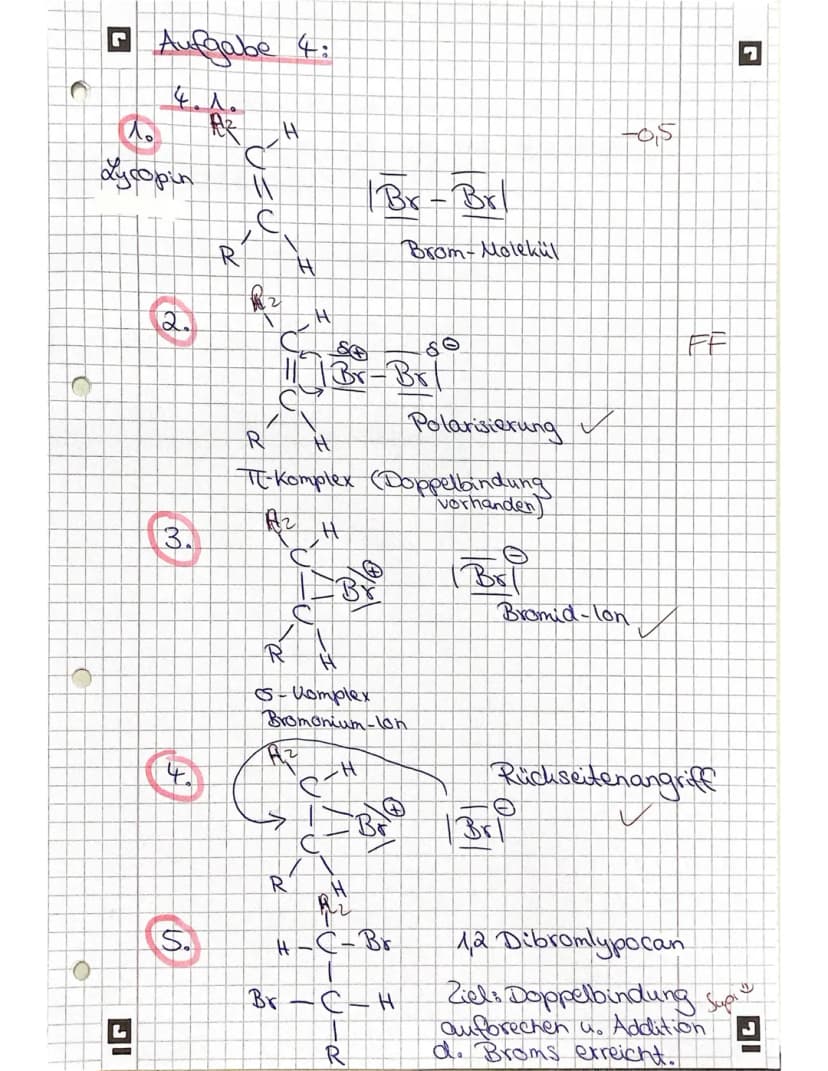 Aufgabe 4:
4.1.
1.
R2 H
C
-0,5
Lycopin
||
C
|Br - Br|
R H
Brom-Molekül
2.
R2 H
C
δ⊕ δ⊖
FF
|| |Br - Br|
C
Polarisierung ✓
R H
π-Komplex (Doppelbindung
vorhanden)
3.
R2 H
C ⊕ ⊖
| Br |Br|
C
Bromid-Ion ✓
R H
σ-Komplex
Bromonium-Ion
4.
R2
C-H
Rückseitenangriff
⊕ ⊖ ✓
| Br |Br|
C
R H
5.
R2
H-C-Br 1,2 Dibromlypocan
|
Br-C-H Ziel: Doppelbindung Supi
| aufbrechen u. Addition
R d. Broms erreicht.